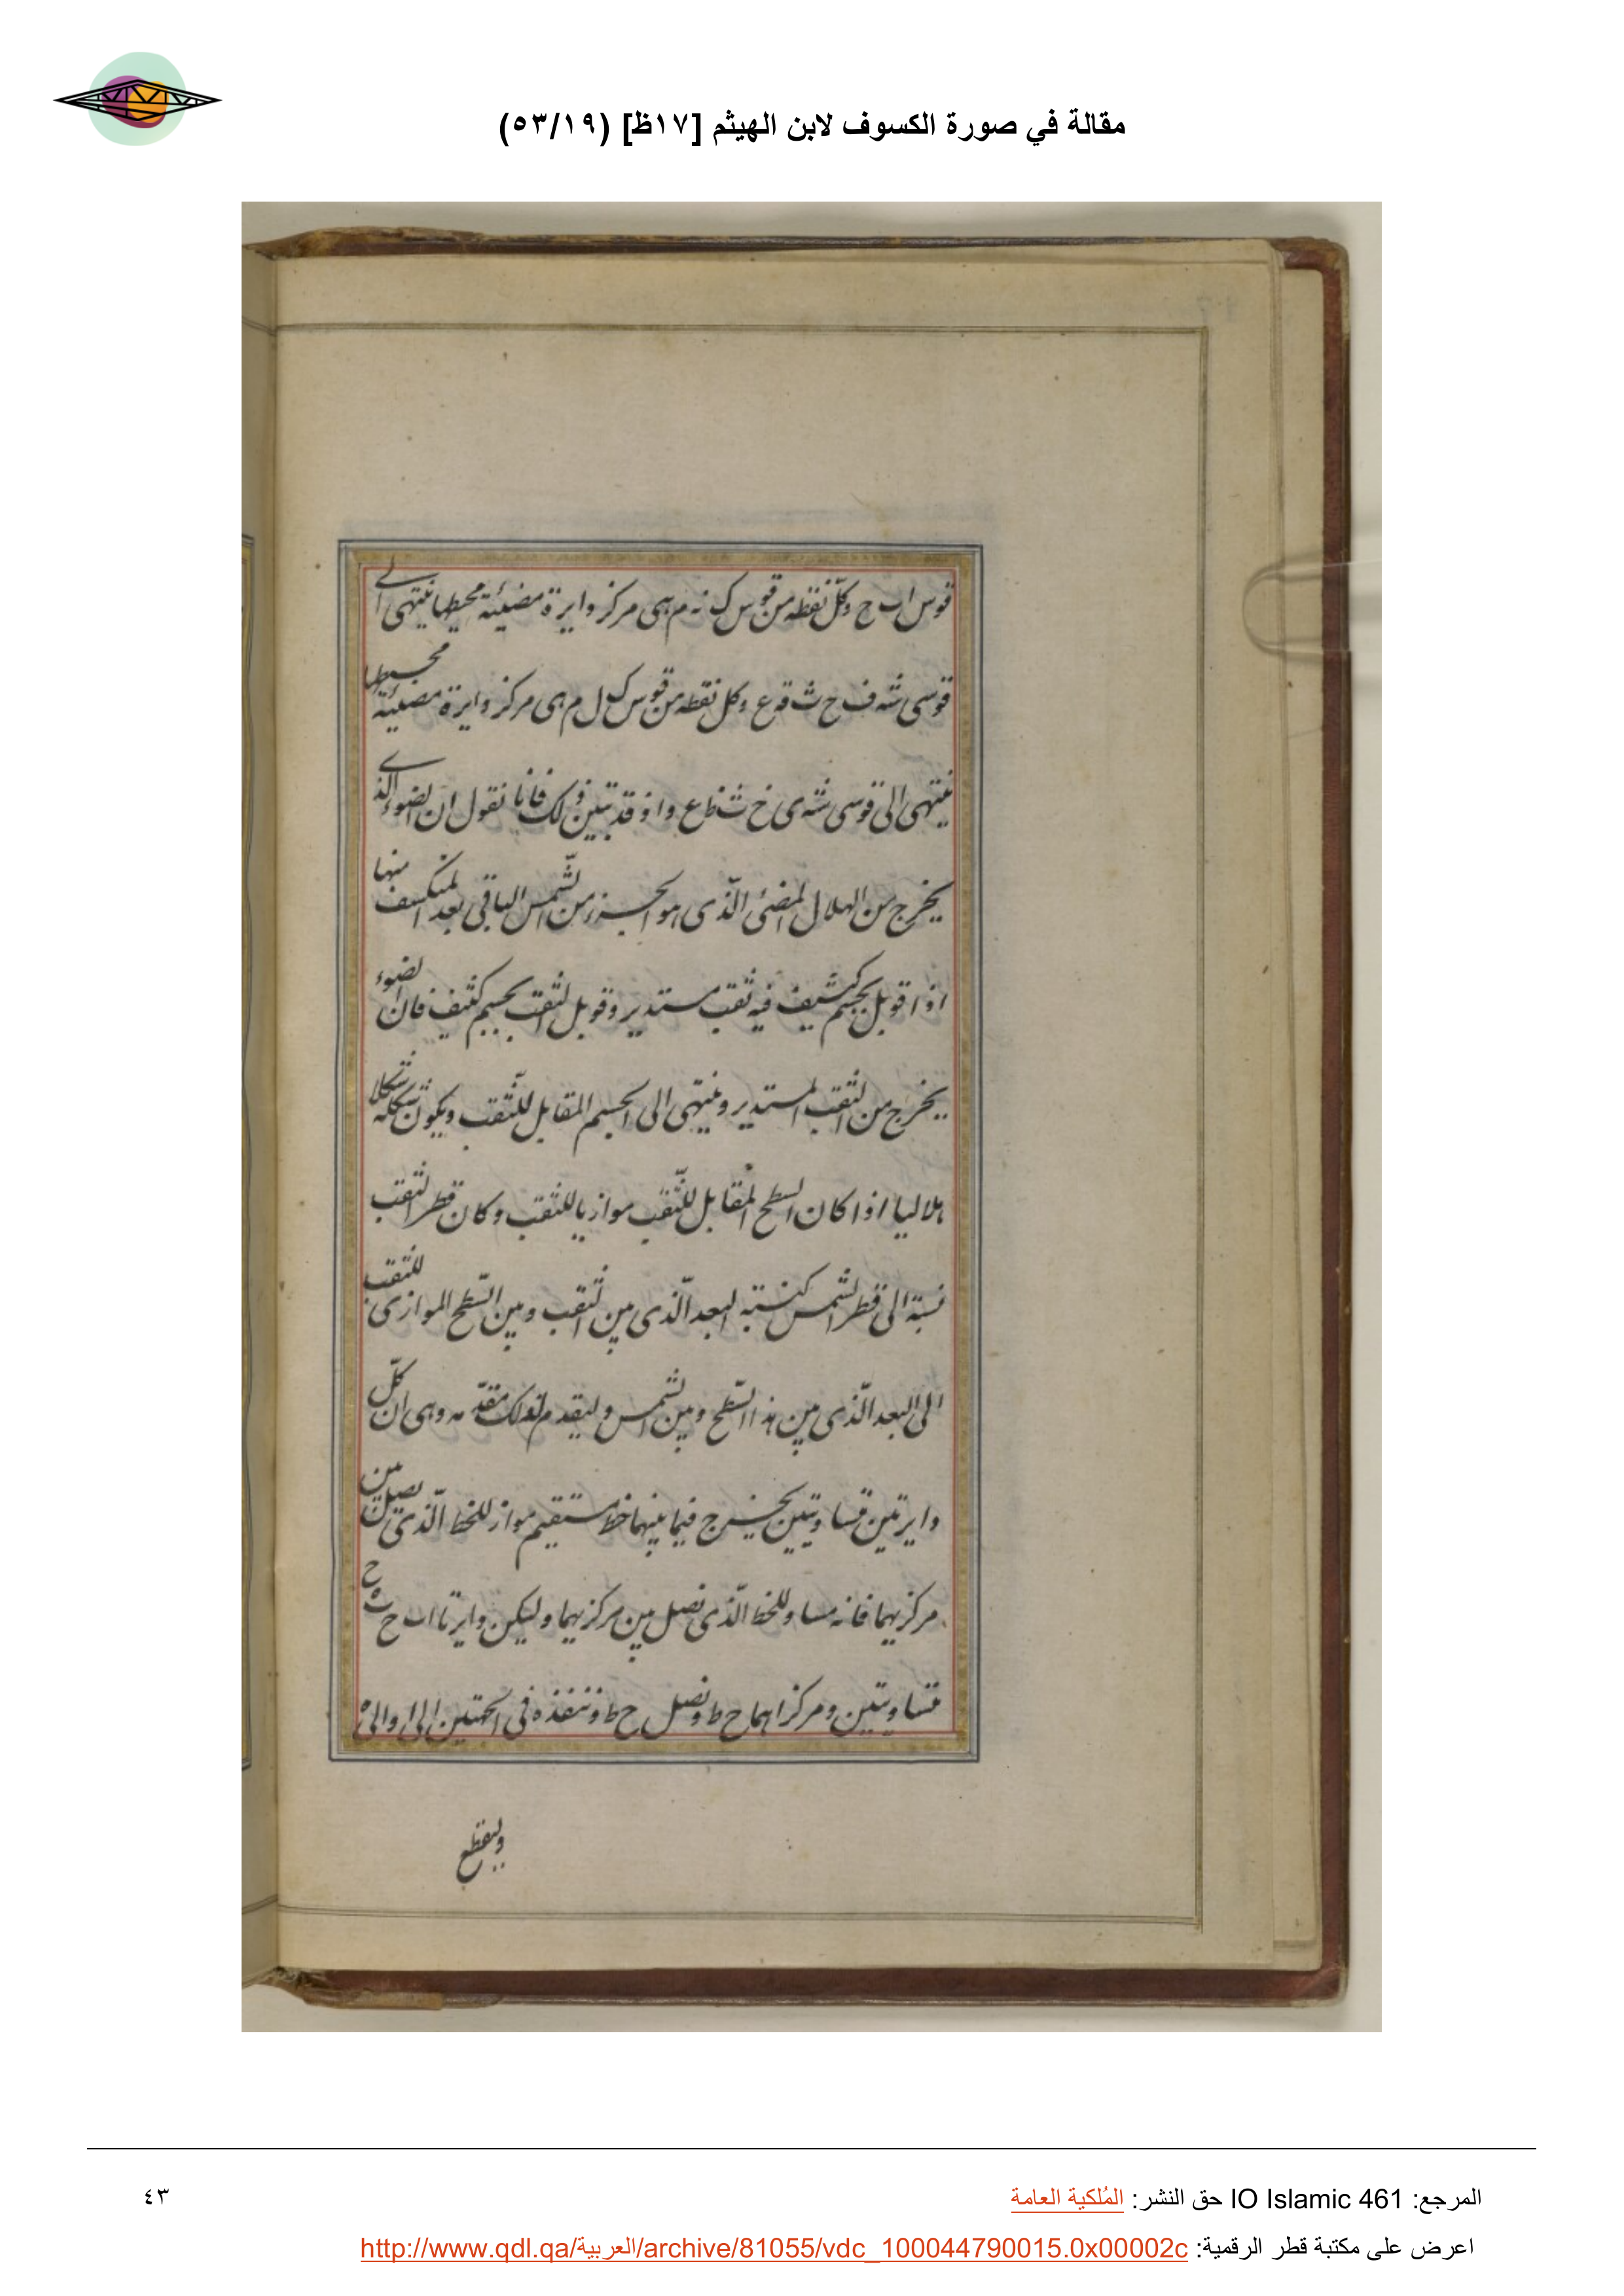 مقالة في صورة الكسوف لابن الهيثم [١٧ظ] (٥٣/١٩)
قوس ا ب ج وكل نقطه من قوس ك نه م هى مركز دايرة مضيئة محيطها ينتهى الى
قوسى شه ف ح ث قه ع وكل نقطه من قوس ك ل م هى مركز دايرة مضيئة محيطها
ينتهى الى قوسى شه ى خ ث ظ ع واذ قد تبين ذلك فانا نقول ان الضوء الذى
يخرج من الهلال المضئ الذى هو الجزء من الشمس الباقى بعد المنكسف منها
اذا قوبل بجسم كثيف فيه ثقب مستدير وقوبل الثقب بجسم كثيف فان الضوء
يخرج من الثقب المستدير وينتهى الى الجسم المقابل للثقب ويكون شكله شكلا
هلاليا اذا كان السطح المقابل للثقب موازيا للثقب وكان قطر الثقب
نسبته الى قطر الشمس كنسبته البعد الذى بين الثقب وبين السطح الموازى للثقب
الى البعد الذى بين هذا السطح وبين الشمس وليقدم لذلك مقدمه وهى ان كل
دايرتين متساويتين يخرج فيما بينهما خط مستقيم مواز للخط الذى يصل بين
مركزيهما فانه مساو للخط الذى نصل بين مركزيهما وليكن دايرتا ا ب ح ث ه ح
متساويتين ومركزاهما ح ط ونصل ح ط وننفذه فى الجهتين الى ا والى ه
وليقطع
المرجع: IO Islamic 461 حق النشر: المُلكية العامة
٤٣
اعرض على مكتبة قطر الرقمية: http://www.qdl.qa/العربية/archive/81055/vdc_100044790015.0x00002c